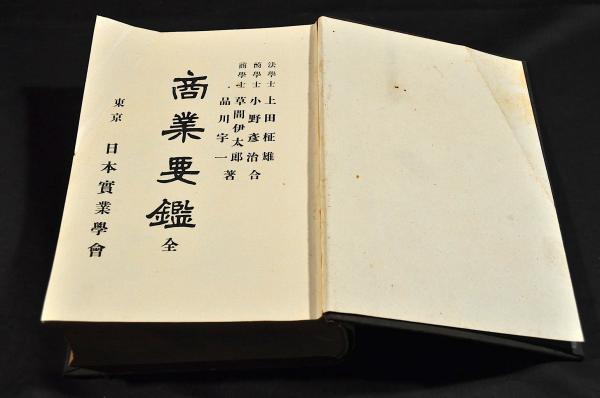 法學士 上田柾雄
商學士 小野彥治 合
商學士 草間伊太郎
品川宇一 著
商業要鑑 全
東京 日本實業學會